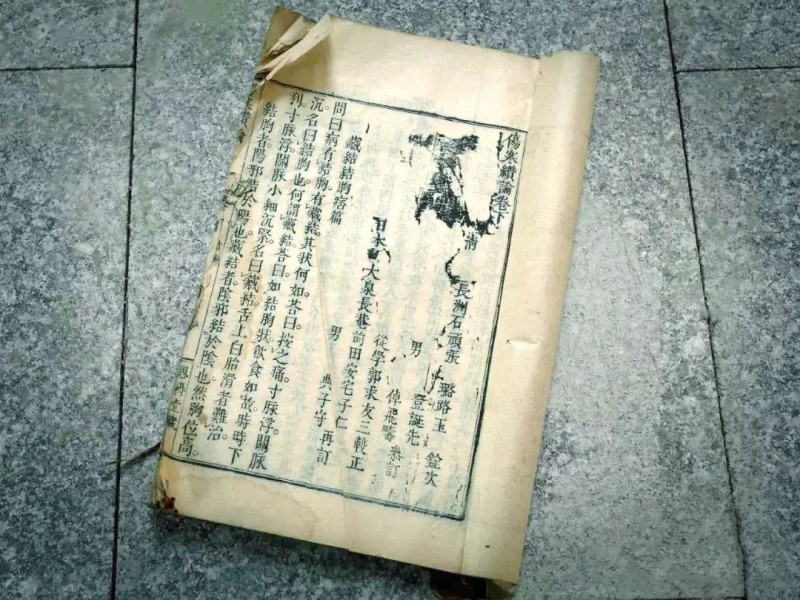 傷寒纘論卷下
清 長洲石頑張 璐路玉 詮次
男 登誕先
倬飛疇 參訂
從學郭來友三較正
日本 大泉長巷前田安宅子仁
男 典子守 再訂
藏結結胸痞篇
問曰病有結胸有藏結其狀何如荅曰按之痛寸脉浮關脉
沉名曰結胸也何謂藏結荅曰如結胸狀飲食如故時時下
利寸脉浮關脉小細沉緊名曰藏結舌上白胎滑者難治
結胸者陽邪結於陽也藏結者陰邪結於陰也然胸位高